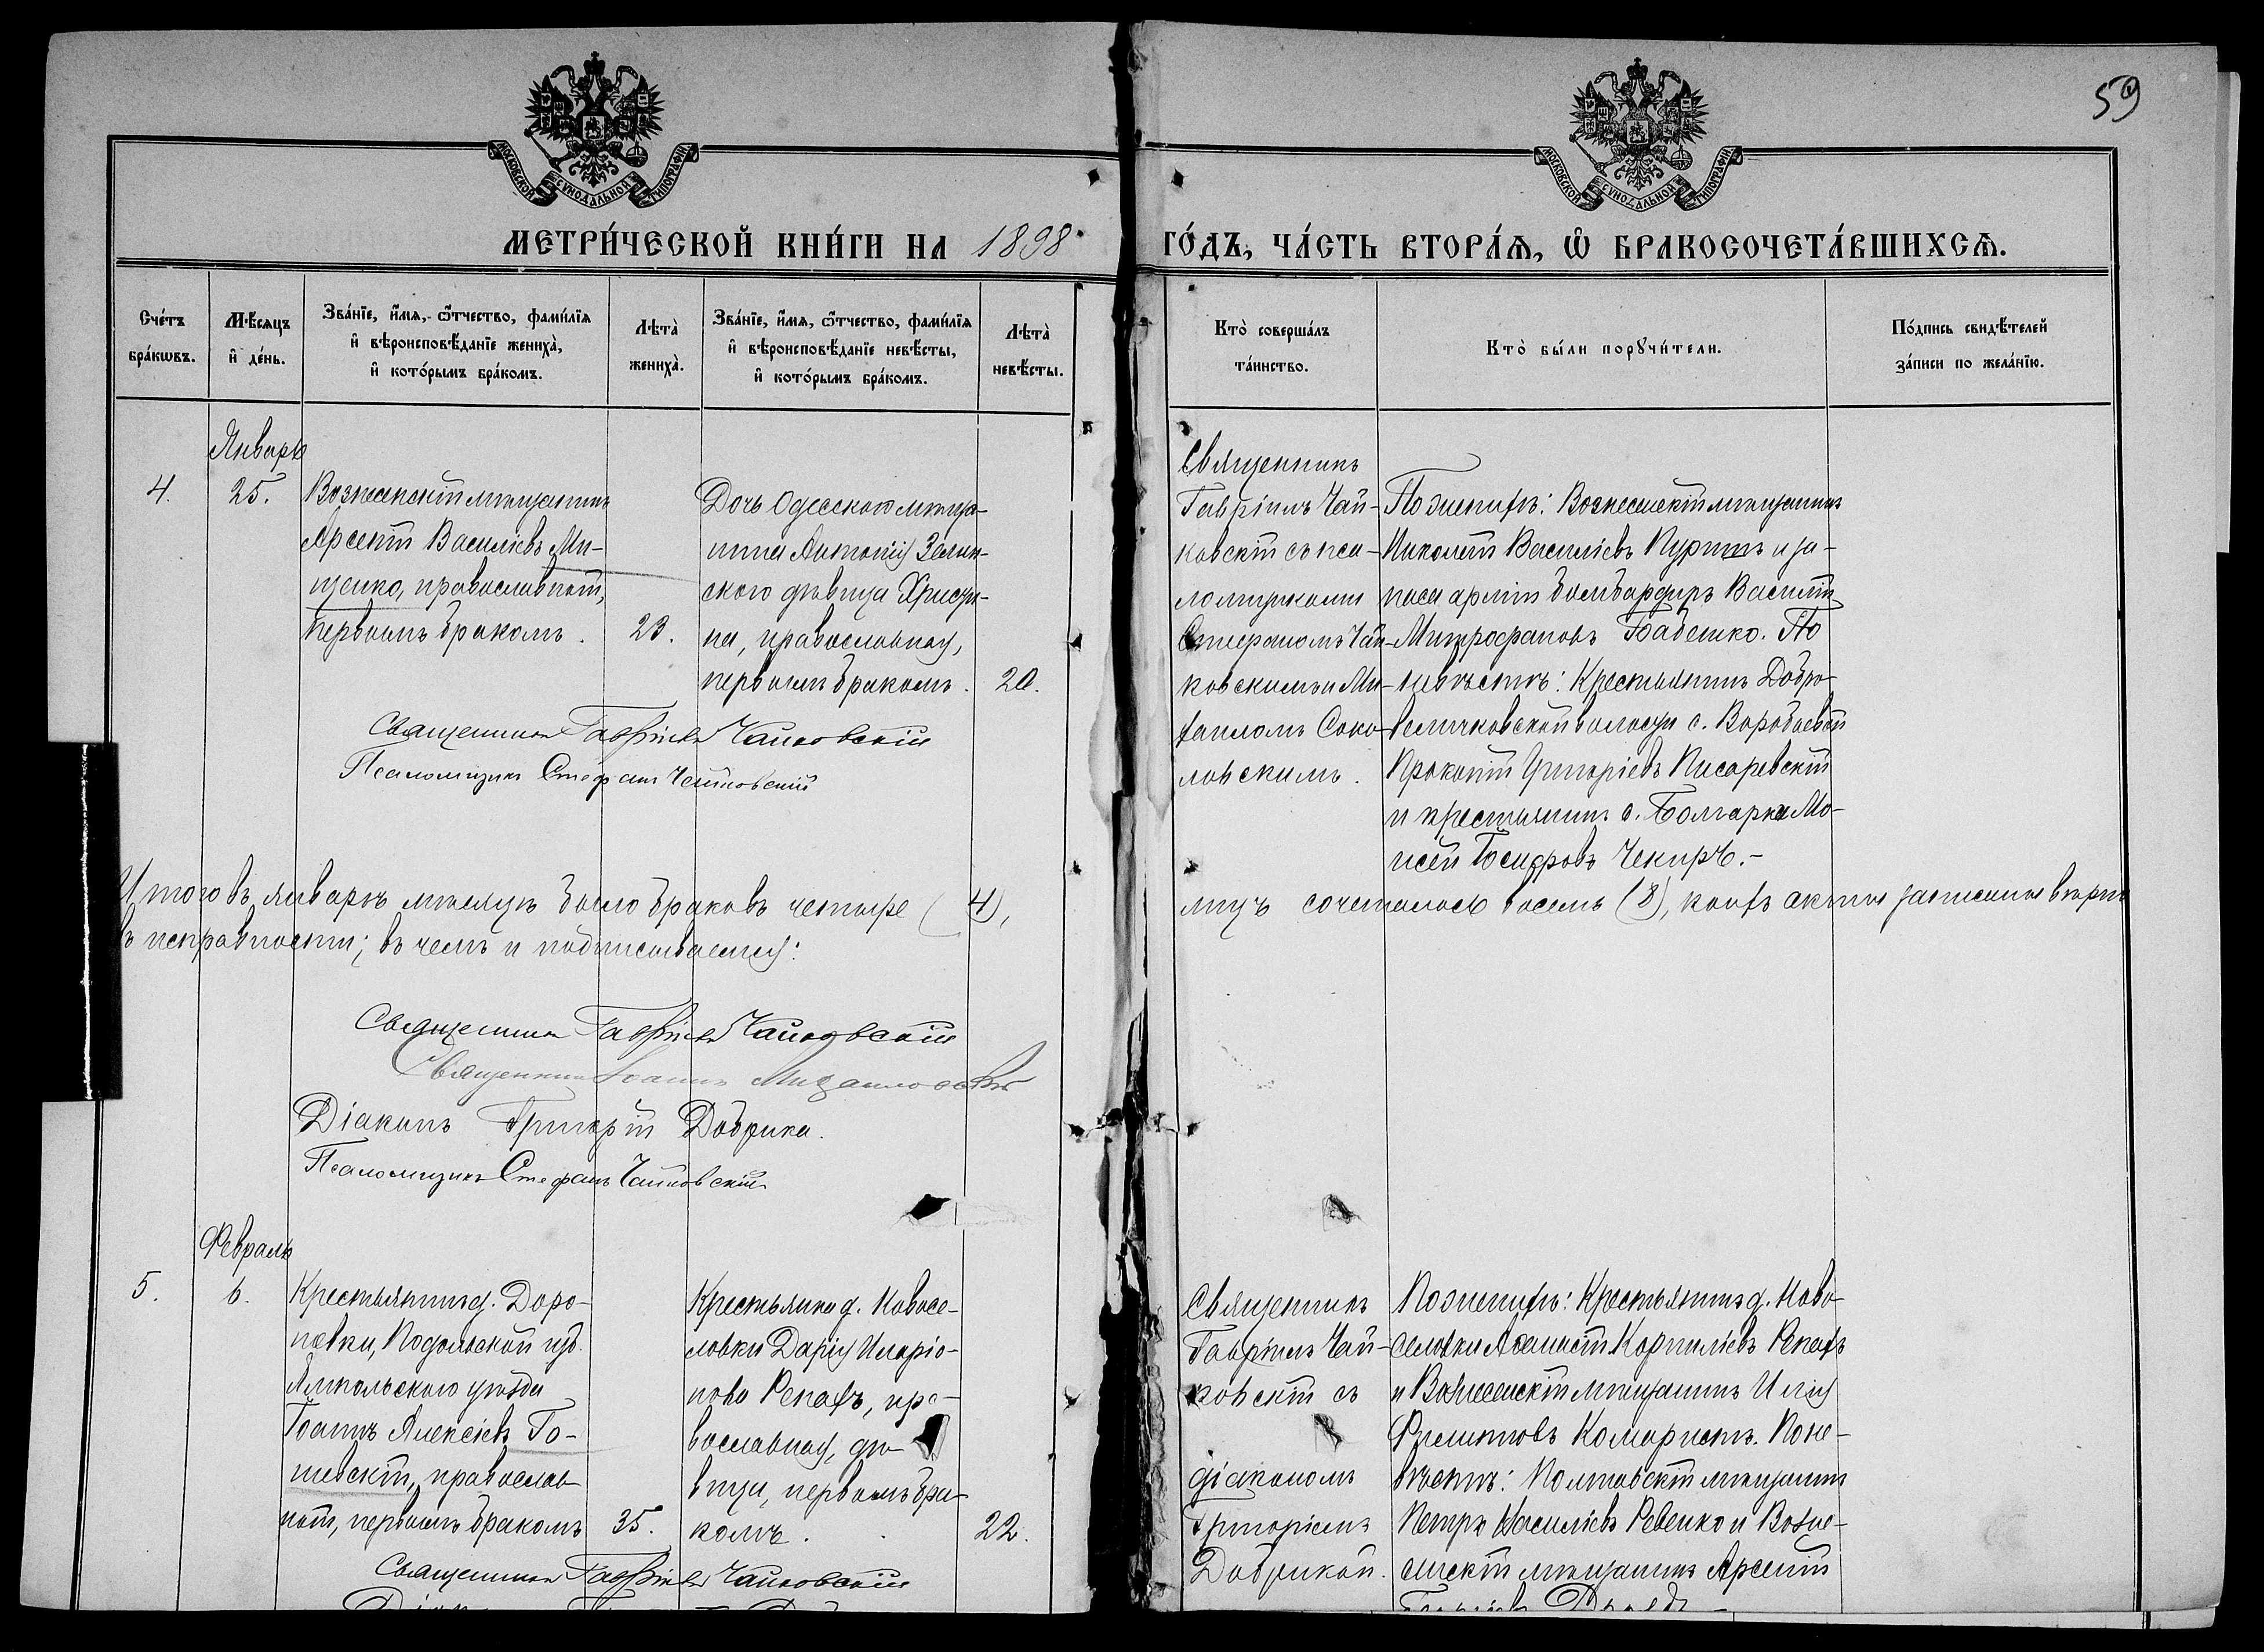 59
МОСКОВСКОЙ СѴНОДАЛЬНОЙ ТИПОГРАФІИ
МОСКОВСКОЙ СѴНОДАЛЬНОЙ ТИПОГРАФІИ
МЕТРИ́ЧЕСКОЙ КНИ́ГИ НА 1898 ГО́ДЪ, ЧА́СТЬ ВТОРА́Ѧ, Ѡ҆ БРАКОСОЧЕТА́ВШИХСѦ.
Сче́тъ бра́кѡвъ.
Мѣ́сяцъ и҆ де́нь.
Зва́нїе, и҆́мя, ѻ҆́тчество, фами́лїя
и҆ вѣроисповѣ́данїе жениха̀,
и҆ кото́рымъ бра́комъ.
Лѣта̀ жениха̀.
Зва́нїе, и҆́мя, ѻ҆́тчество, фами́лїя
и҆ вѣроисповѣ́данїе невѣ́сты,
и҆ кото́рымъ бра́комъ.
Лѣта̀ невѣ́сты.
Кто̀ соверша́лъ та́инство.
Кто̀ бы́ли порꙋчи́тели.
По́дпись свидѣ́телей за́писи по жела́нїю.
Январь
4.
25.
Вознесенскій мѣщанинъ
Арсеній Василіевъ Ми-
щенко, православный,
первымъ бракомъ.
23.
Дочь Одесскаго мѣща-
нина Антонія Зелин-
скаго дѣвица Христи-
на, православная,
первымъ бракомъ.
20.
Священникъ
Гавріилъ Чай-
ковскій съ пса-
ломщиками
Стефаномъ Чай-
ковскимъ и Ми-
хаиломъ Соко-
ловскимъ.
По женихѣ: Вознесенскій мѣщанинъ
Николай Василіевъ и за-
паса арміи бомбардиръ Василій
Митрофановъ Бабешко. По
невѣстѣ: Крестьянинъ Добро-
величковской волости с. Воробьевки
Прокопій Григоріевъ Писаревскій
и крестьянинъ с. Болгарки Мо-
исей Чекиръ.-
Священникъ Гавріилъ Чайковскій
Псаломщикъ Стефанъ Чайковскій
Итого въ январѣ мѣсяцѣ было браковъ четыре (4), лицъ сочеталось восемь (8), коихъ акты записаны вѣрно
въ исправности; въ чемъ и подписываемся:
Священникъ Гавріилъ Чайковскій
Священникъ Іоаннъ Михайловскій
Діаконъ Григорій Добрика.
Псаломщикъ Стефанъ Чайковскій
Февраль
5.
6.
Крестьянинъ д. Доро-
шовки, Подольской губ.
Ямпольскаго уѣзда
Іоаннъ Алексіевъ Го-
шевскій, православ-
ный, первымъ бракомъ
35.
Крестьянка д. Новосе-
ловки Дарія Иларіо-
нова Репехъ, пра-
вославная, дѣ-
вица, первымъ бра-
комъ.
22.
Священникъ
Гавріилъ Чай-
ковскій съ
діакономъ
Григоріемъ
Добрикой.
По женихѣ: Крестьянинъ д. Ново-
селовки Корниліевъ Репехъ
и Вознесенскій мѣщанинъ Илія
Филипповъ Комаристъ. По не-
вѣстѣ: Полтавскій мѣщанинъ
Петръ Василіевъ Ревенко и Возне-
сенскій мѣщанинъ Арсеній
Священникъ Гавріилъ Чайковскій